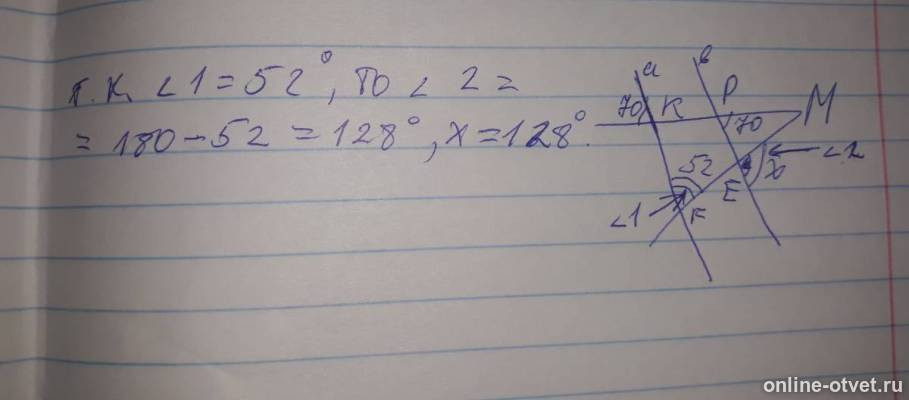 т.к. <1=52°, то < 2 =
= 180-52 = 128°, x=128°.
a
в
70
К
P
M
70
52
<2
x
E
<1
F
online-otvet.ru